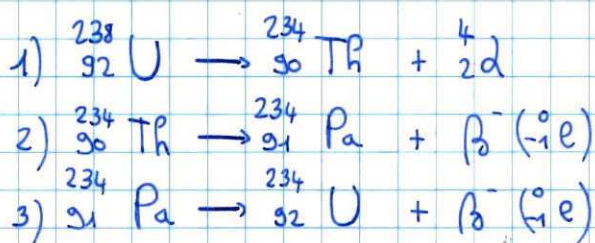 1) ²³⁸₉₂U → ²³⁴₉₀Th + ⁴₂α
2) ²³⁴₉₀Th → ²³⁴₉₁Pa + β⁻ (⁰₋₁e)
3) ²³⁴₉₁Pa → ²³⁴₉₂U + β⁻ (⁰₋₁e)